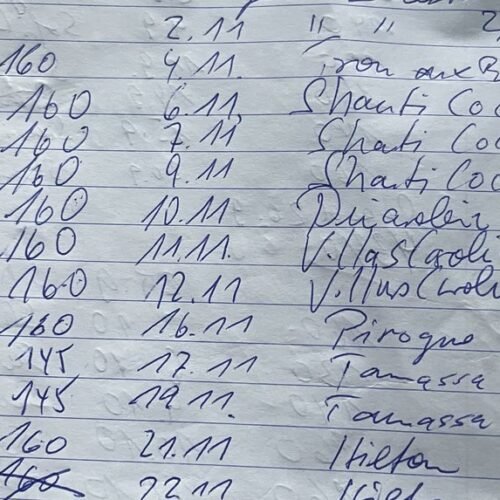 2.11 " "
160 4.11. Trou aux B
160 6.11. Shanti Coc
160 7.11 Shanti Coc
160 9.11 Shanti Coc
160 10.11
160 11.11. Villas Caroli
160 12.11 Villas Caroli
160 16.11 Pirogue
145 17.11 Tamassa
145 19.11. Tamassa
160 21.11 Hilton
160 22.11